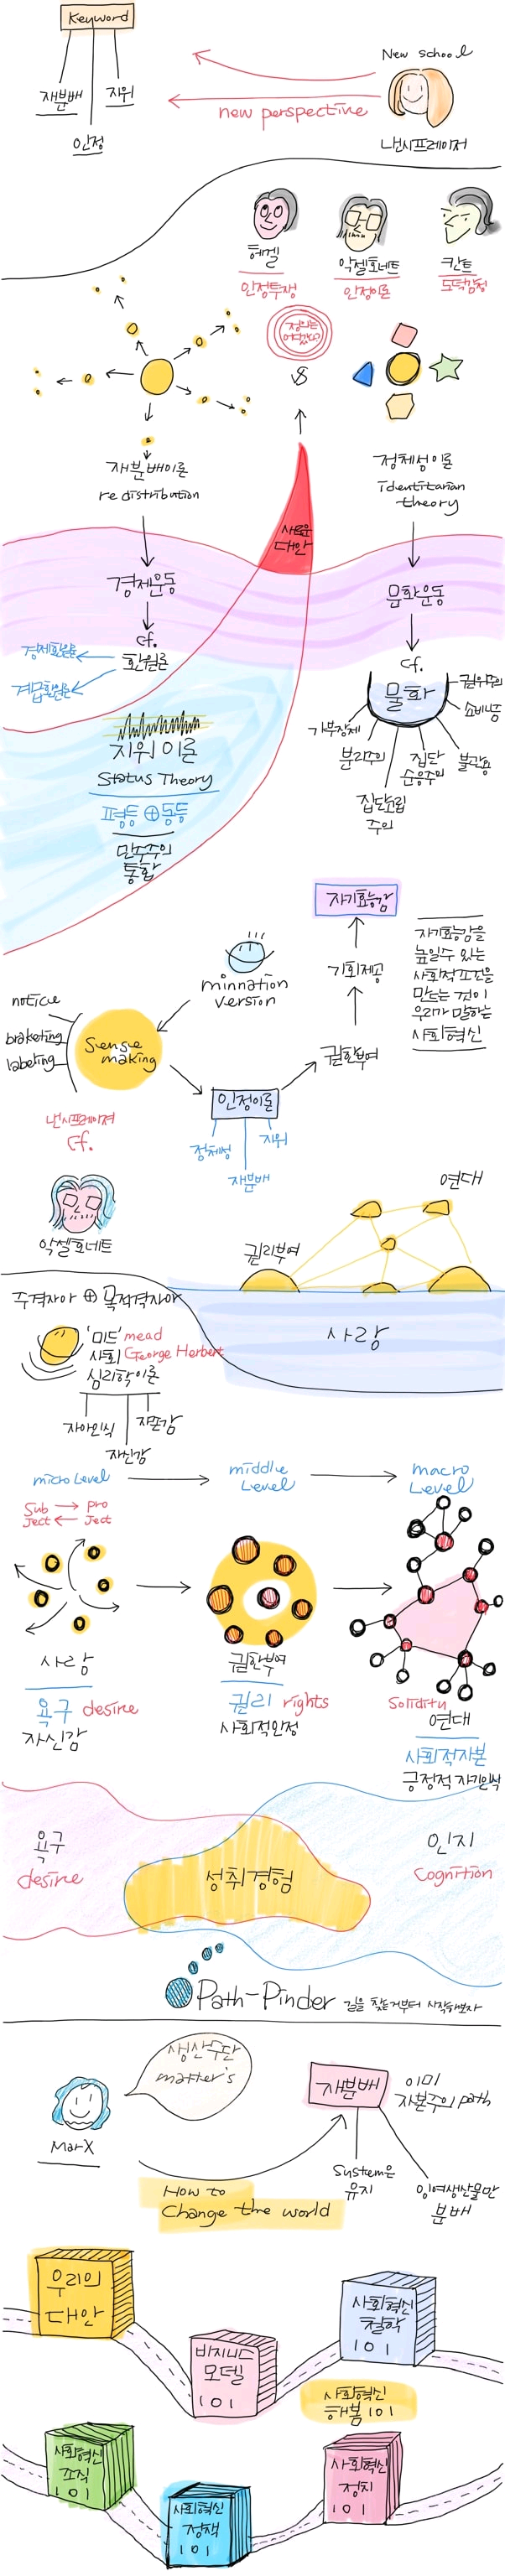 Keyword
재분배
지위
인정
New school
new perspective
낸시프레이저
헤겔
인정투쟁
악셀호네트
인정이론
칸트
도덕감정
정의는
어디있나?
VS
재분배이론
redistribution
정체성이론
identitarian
theory
새로운
대안
경제운동
cf.
환원론
경제환원론
계급환원론
문화운동
cf.
물화
가부장제
분리주의
집단
순응주의
불관용
집단고립
주의
권위주의
소비주의
지위이론
Status Theory
평등 ⊕ 동등
민주주의
통합
자기효능감
기회제공
권한부여
자기효능감을
높일수 있는
사회적조건을
만드는 것이
우리가 말하는
사회혁신
minnation
version
notice
braketing
labeling
Sense
making
인정이론
정체성
재분배
지위
낸시프레이저
cf.
악셀호네트
연대
권리부여
사랑
주격자아 ⊕ 목적격자아
'미드' mead
사회 George Herbert
심리학이론
자아인식
자신감
자존감
micro Level
middle
Level
macro
Level
Sub
ject
pro
ject
사랑
욕구 desire
자신감
권한부여
권리 rights
사회적인정
연대
사회적자본
긍정적 자기인식
욕구
desire
성취경험
인지
Cognition
Path-Pinder 길을 찾는거부터 시작해보자
생산수단
matter's
MarX
재분배
이미
자본주의 path
System은
유지
잉여생산물만
분배
How to
Change the world
우리의
대안
비지니스
모델
101
사회혁신
철학
101
사회혁신
해봄 101
사회혁신
조직
101
사회혁신
정책
101
사회혁신
정치
101